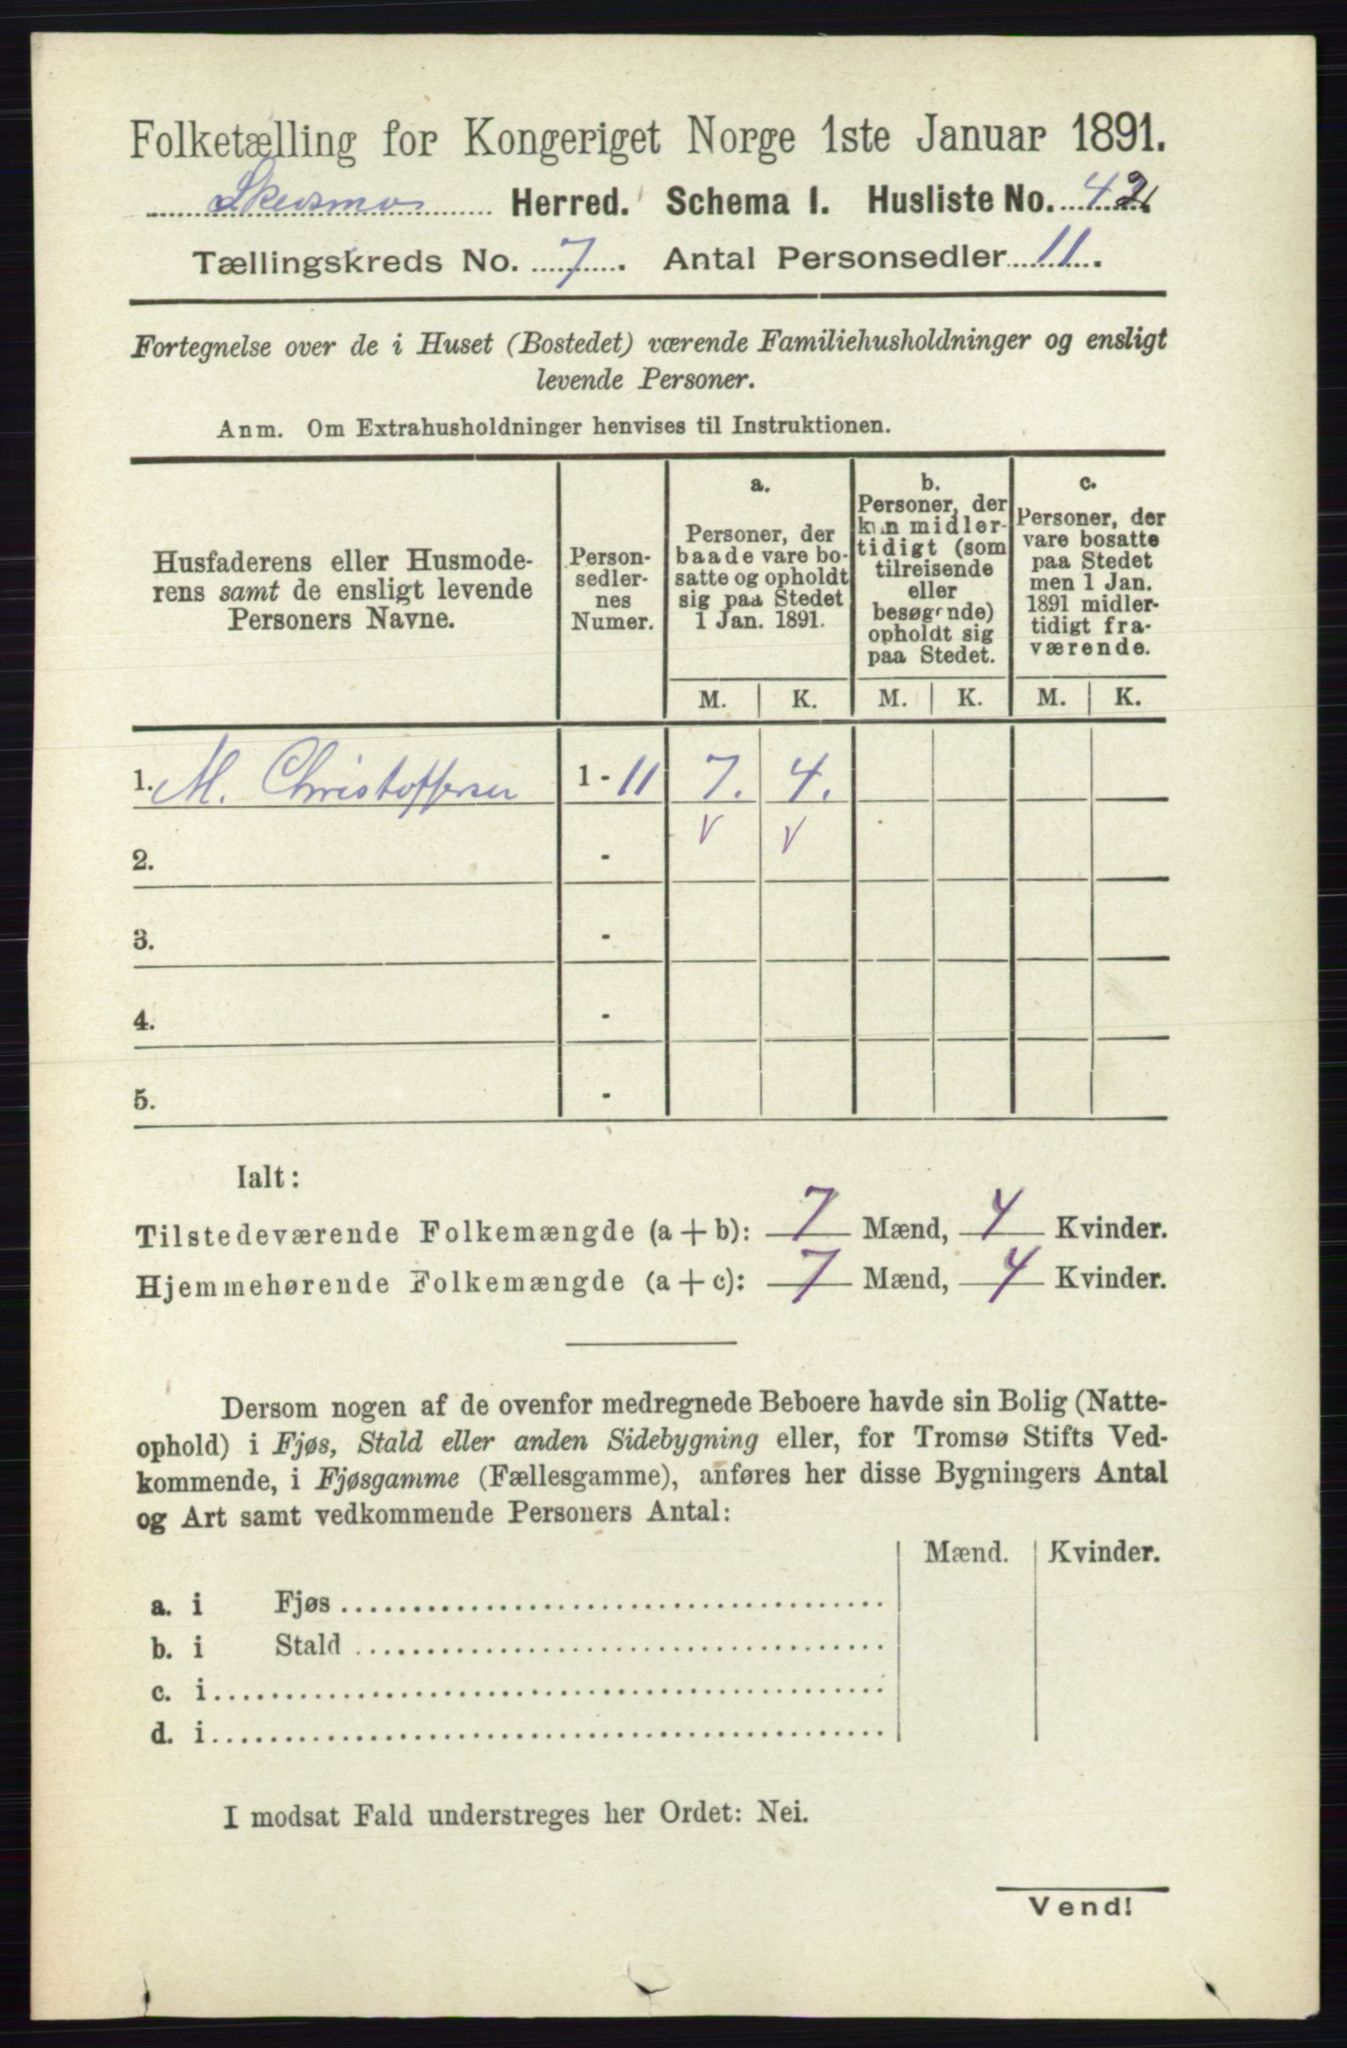 Folketælling for Kongeriget Norge 1ste Januar 1891.
Skedsmo Herred. Schema I. Husliste No. 42.
Tællingskreds No. 7. Antal Personsedler 11.
Fortegnelse over de i Huset (Bostedet) værende Familiehusholdninger og ensligt
levende Personer.
Anm. Om Extrahusholdninger henvises til Instruktionen.
Husfaderens eller Husmode-
rens samt de ensligt levende
Personers Navne.
Person-
sedler-
nes
Numer.
a.
Personer, der
baade vare bo-
satte og opholdt
sig paa Stedet
1 Jan. 1891.
b.
Personer, der
kun midler-
tidigt (som
tilreisende
eller
besøgende)
opholdt sig
paa Stedet.
c.
Personer, der
vare bosatte
paa Stedet
men 1 Jan.
1891 midler-
tidigt fra-
værende.
M. K. M. K. M. K.
1. M. Christoffersen 1 - 11 7. 4.
v v
2. -
3. -
4. -
5. -
Ialt:
Tilstedeværende Folkemængde (a + b): 7 Mænd, 4 Kvinder.
Hjemmehørende Folkemængde (a + c): 7 Mænd, 4 Kvinder.
Dersom nogen af de ovenfor medregnede Beboere havde sin Bolig (Natte-
ophold) i Fjøs, Stald eller anden Sidebygning eller, for Tromsø Stifts Ved-
kommende, i Fjøsgamme (Fællesgamme), anføres her disse Bygningers Antal
og Art samt vedkommende Personers Antal:
Mænd. Kvinder.
a. i Fjøs
b. i Stald
c. i
d. i
I modsat Fald understreges her Ordet: Nei.
Vend!